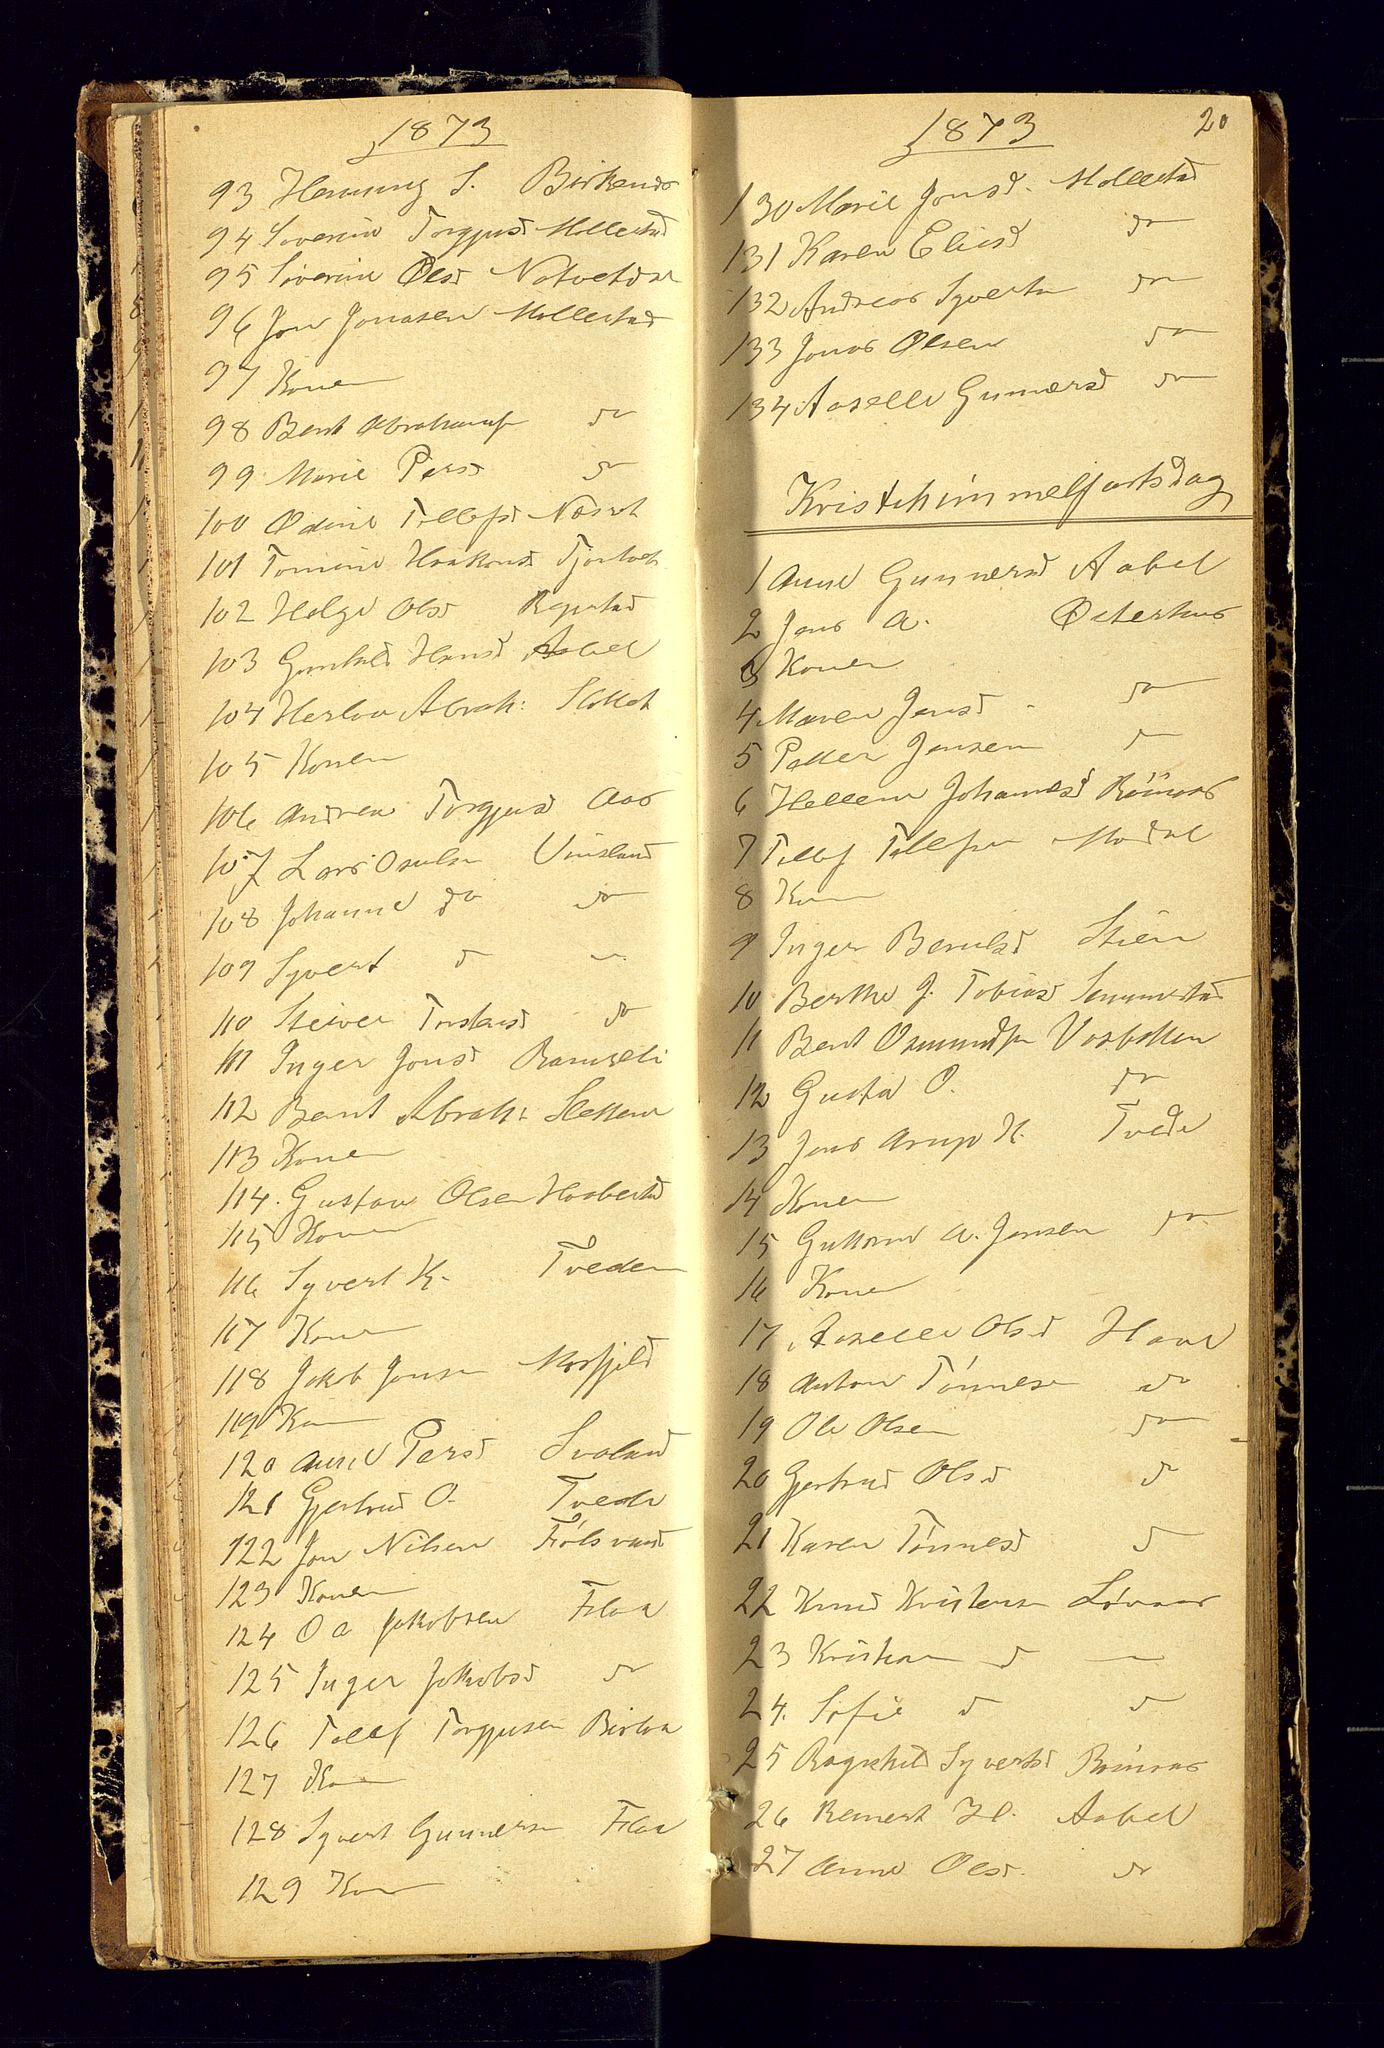 1873
93 Henning S. Birkenes
94 Severine Torgjusd Mollestad
95 Severine Olsd
96 Jon Jonasen Mollestad
97 Konen
98 Bent Abrahams do
99 Marie Persd do
100 Tellefsd
101 Tomine Haakonsd
102 Helge Olsd
103 Gunhild Hansd Aabel
104 Abrah:
105 Konen
106 Andrea Torgjusd Aas
107 Lars Osulsen Vinsland
108 Johanne do do
109 Syvert d
110 Torslaisd do
111 Inger Jonsd Ramseli
112 Bent Abrah: Slettene
113 Konen
114. Gustav Olsen Haabesta
115 Konen
116 Syvert K. Tveden
117 Konen
118 Jakob Jensen
119 Kon
120 Anne Persd Svaland
121 Gjertrud O. Tvede
122 Jon Nilsen Følsvand
123 Konen
124 O A Jakobsen Flaa
125 Inger Jakobsd do
126 Tellef Torgjusen
127 Kon
128 Syvert Gunnersen Flaa
129 Kon
1873 20
130 Marie Jonsd. Mollestad
131 Karen Eliesd do
132 Andreas Syverts do
133 Jonas Olsen do
134 Aaselle Gunnersd do
Kristihimmelfartsdag
1 Anne Gunnersd Aabel
2 Jens A. Østerhus
3 Konen
4 Maren Jensd do
5 Petter Jensen do
6 Hellene Johannesd
7 Tellef Tellefsen
8 Kon
9 Inger Berulsd Stien
10 Berthe J. Tobiasd
11 Bent Osmundsen Vasbotten
12 Gusta O. do
13 Jens Arup H. Tvede
14 Konen
15 Guttorm A. Jensen do
16 Konen
17 Aaselle Olsd Haave
18 Anton Tønnesen do
19 Ole Olsen do
20 Gjertrud Olsd d
21 Karen Tønnesd d
22 Knud Kristensen Løvaas
23 Kristian d
24. Sofie d d
25 Ragnhild Syvertsd
26 Reinert H. Aabel
27 Anne Olsd. do